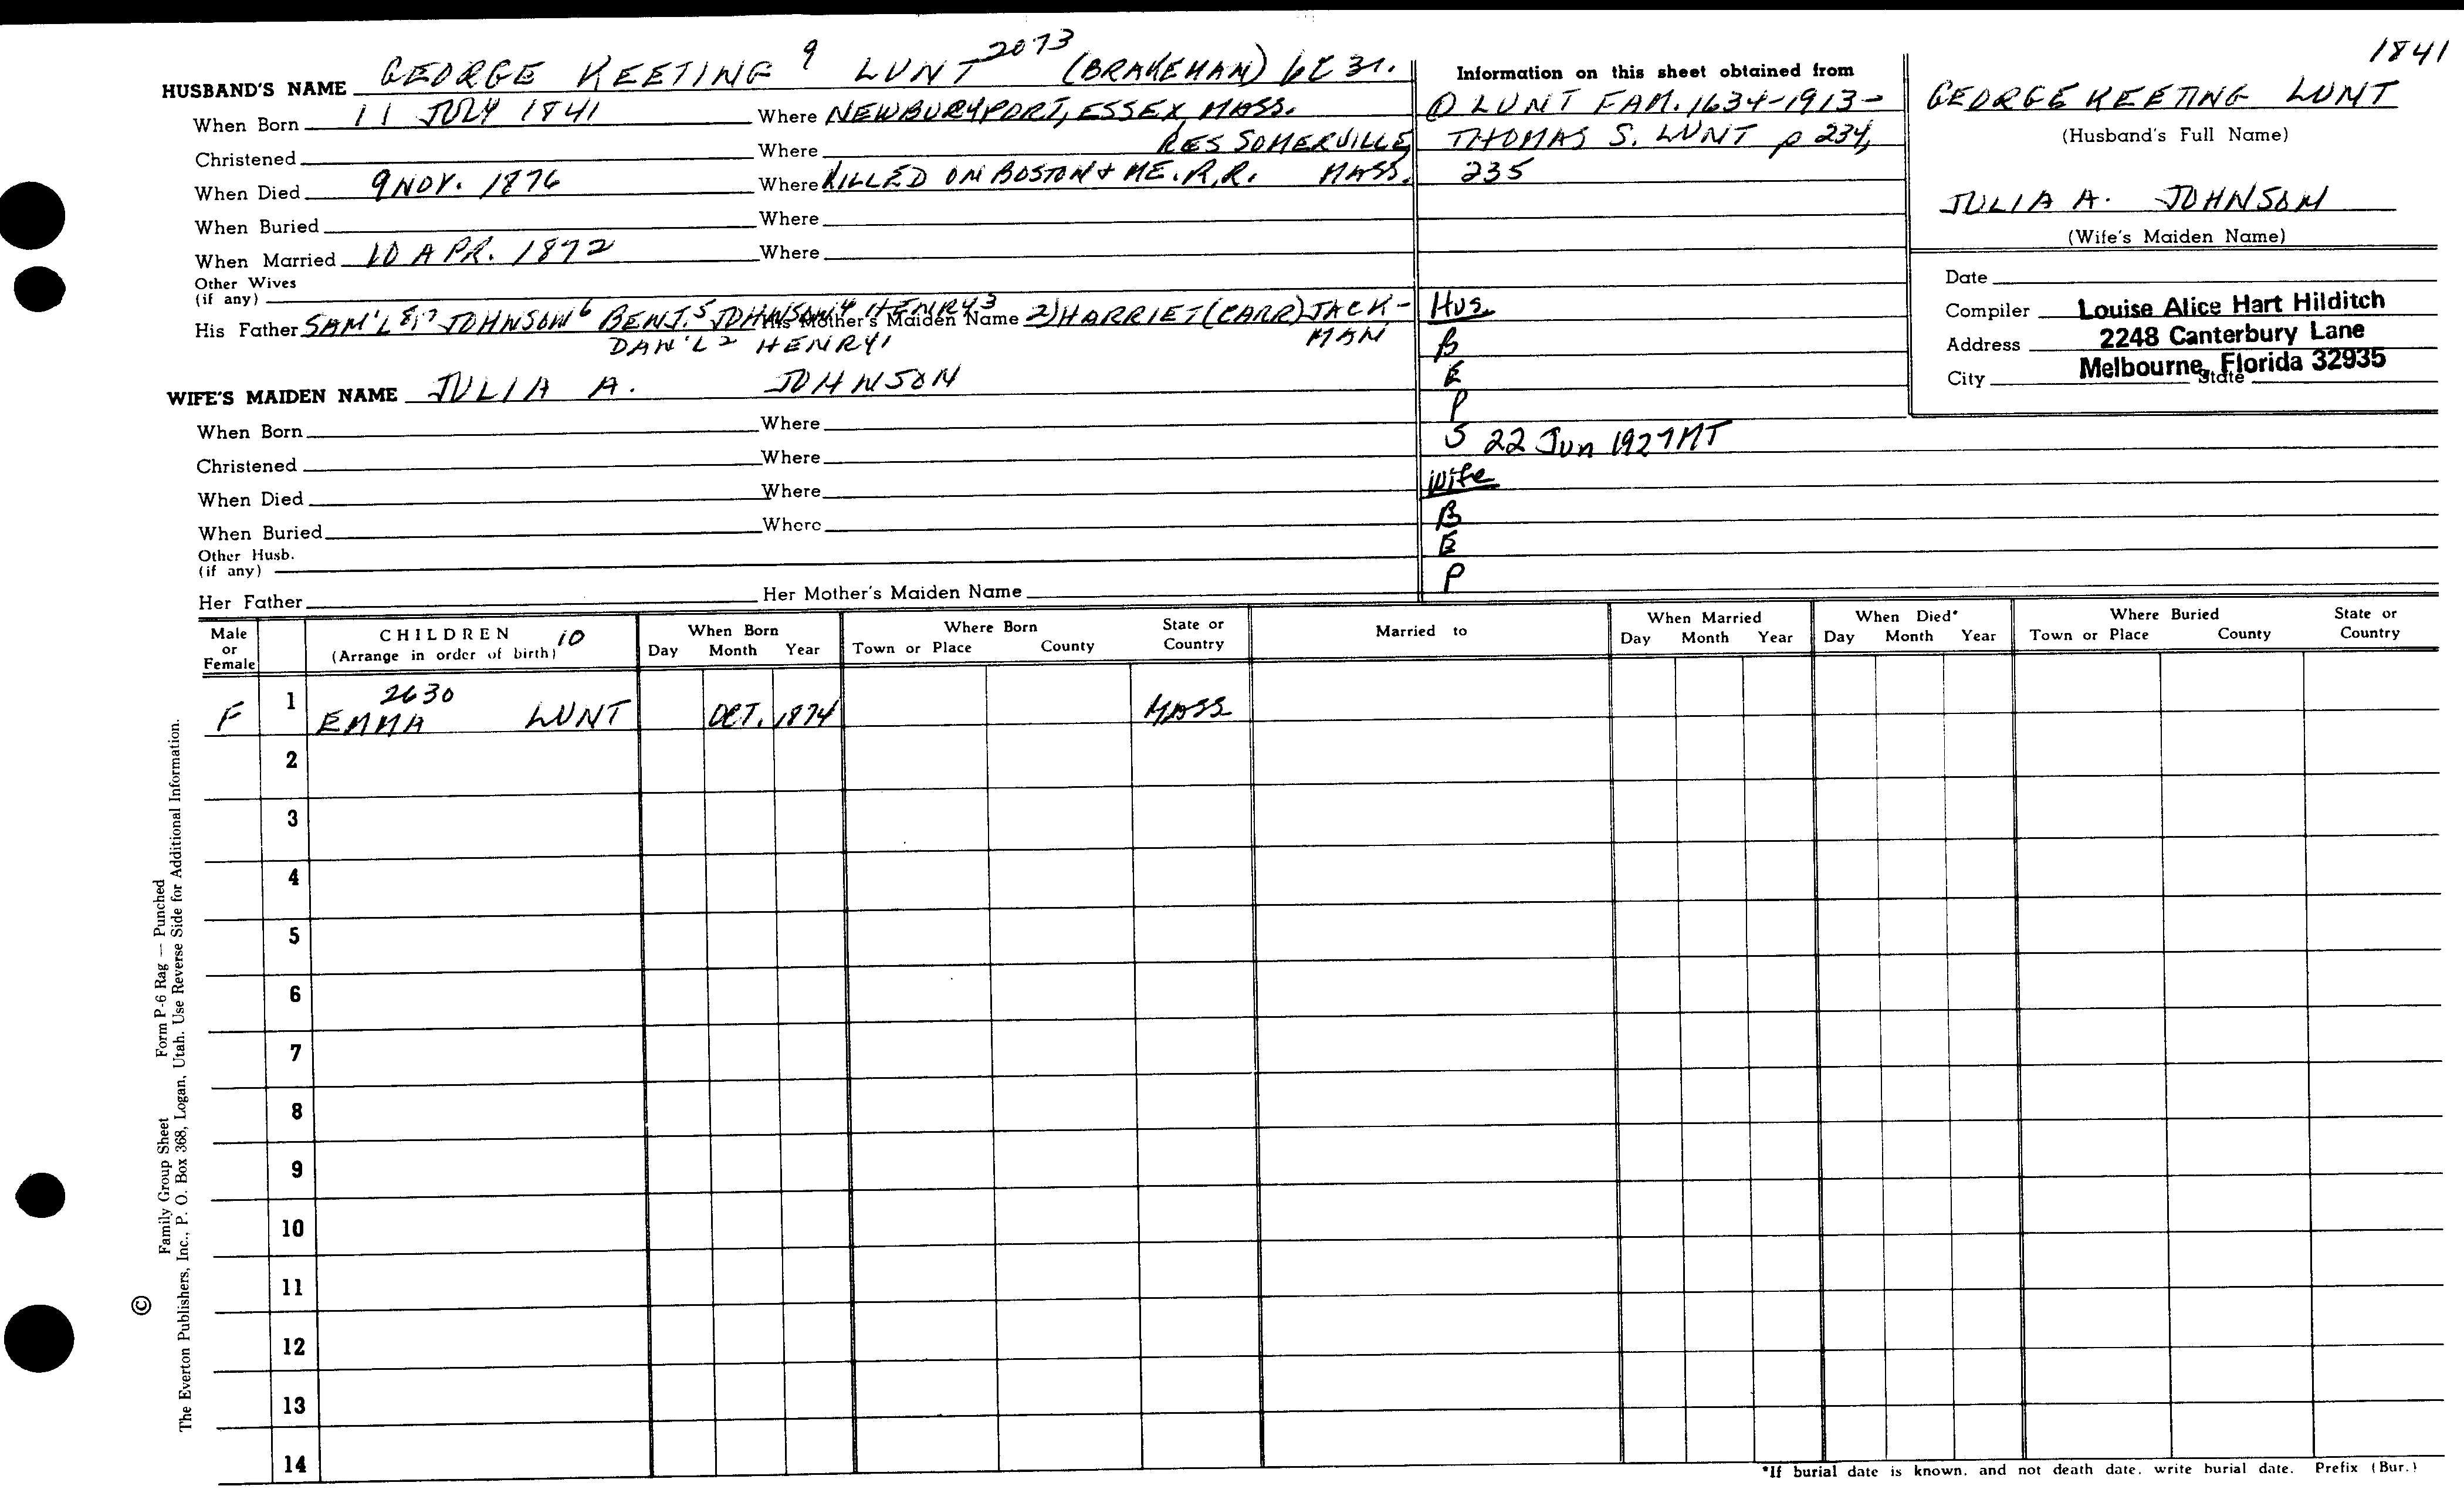 1841
HUSBAND'S NAME GEORGE KEETING 9 LUNT 2073 (BRAKEMAN)
When Born 11 JULY 1841 Where NEWBURYPORT, ESSEX, MASS.
Christened Where RES SOMERVILLE
When Died 9 NOV. 1876 Where KILLED ON BOSTON & ME. R.R. MASS.
When Buried Where
When Married 10 APR. 1872 Where
Other Wives
(if any)
His Father SAM'L 8,7 JOHNSON 6 BENJ. 5 JOHNSON 4 HENRY 3 His Mother's Maiden Name 2) HARRIET (CARR) JACK-
DAN'L 2 HENRY 1 MAN
WIFE'S MAIDEN NAME JULIA A. JOHNSON
When Born Where
Christened Where
When Died Where
When Buried Where
Other Husb.
(if any)
Her Father Her Mother's Maiden Name
Information on this sheet obtained from
LUNT FAM. 1634-1913-
THOMAS S. LUNT p 234,
235
Hus.
B
E
P
S 22 Jun 1927 MT
Wife
B
E
P
GEORGE KEETING LUNT
(Husband's Full Name)
JULIA A. JOHNSON
(Wife's Maiden Name)
Date
Compiler Louise Alice Hart Hilditch
Address 2248 Canterbury Lane
City Melbourne, Florida 32935 State
Male or Female CHILDREN 10 (Arrange in order of birth) When Born Day Month Year Where Born Town or Place County State or Country Married to When Married Day Month Year When Died* Day Month Year Where Buried Town or Place County State or Country
1 2630
F EMMA LUNT OCT. 1874 MASS
2
3
4
5
6
7
8
9
10
11
12
13
14
*If burial date is known, and not death date, write burial date. Prefix (Bur.)
Family Group Sheet Form P-6 Rag — Punched
© The Everton Publishers, Inc., P. O. Box 368, Logan, Utah. Use Reverse Side for Additional Information.